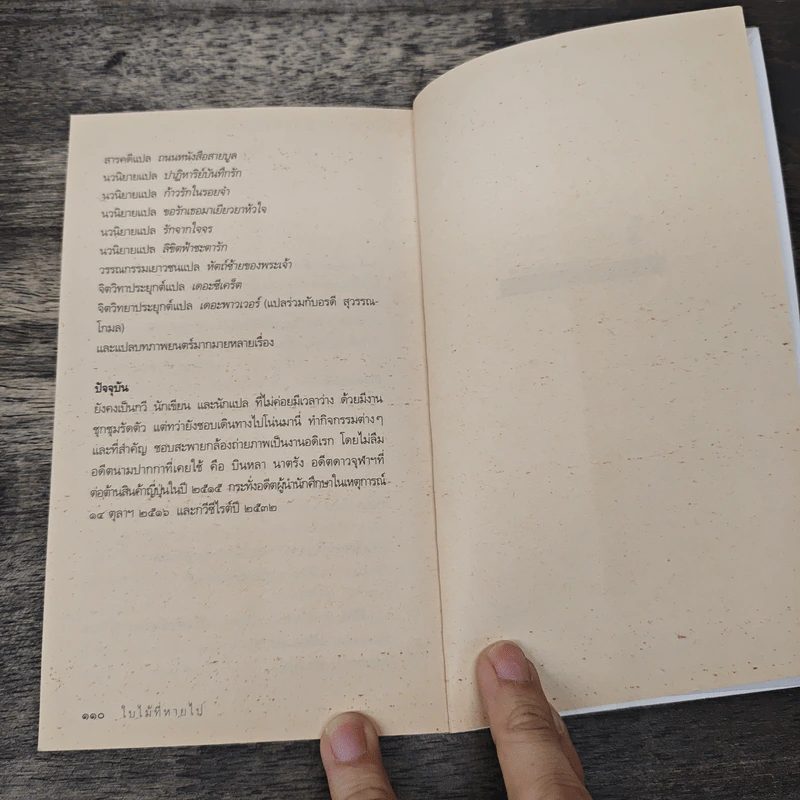 สารคดีแปล ถนนหนังสือสายบูล
นวนิยายแปล ปาฏิหาริย์บันทึกรัก
นวนิยายแปล ก้าวรักในรอยจำ
นวนิยายแปล ขอรักเธอมาเยียวยาหัวใจ
นวนิยายแปล รักจากใจจร
นวนิยายแปล ลิขิตฟ้าชะตารัก
วรรณกรรมเยาวชนแปล หัตถ์ซ้ายของพระเจ้า
จิตวิทยาประยุกต์แปล เดอะซีเคร็ต
จิตวิทยาประยุกต์แปล เดอะพาวเวอร์ (แปลร่วมกับอรดี สุวรรณ-
โกมล)
และแปลบทภาพยนตร์มากมายหลายเรื่อง
ปัจจุบัน
ยังคงเป็นกวี นักเขียน และนักแปล ที่ไม่ค่อยมีเวลาว่าง ด้วยมีงาน
ชุกชุมรัดตัว แต่ทว่ายังชอบเดินทางไปโน่นมานี่ ทำกิจกรรมต่างๆ
และที่สำคัญ ชอบสะพายกล้องถ่ายภาพเป็นงานอดิเรก โดยไม่ลืม
อดีตนามปากกาที่เคยใช้ คือ บินหลา นาตรัง อดีตดาวจุฬาฯที่
ต่อต้านสินค้าญี่ปุ่นในปี ๒๕๑๕ กระทั่งอดีตผู้นำนักศึกษาในเหตุการณ์
๑๔ ตุลาฯ ๒๕๑๖ และกวีซีไรต์ปี ๒๕๓๒
๑๑๐ ใบไม้ที่หายไป